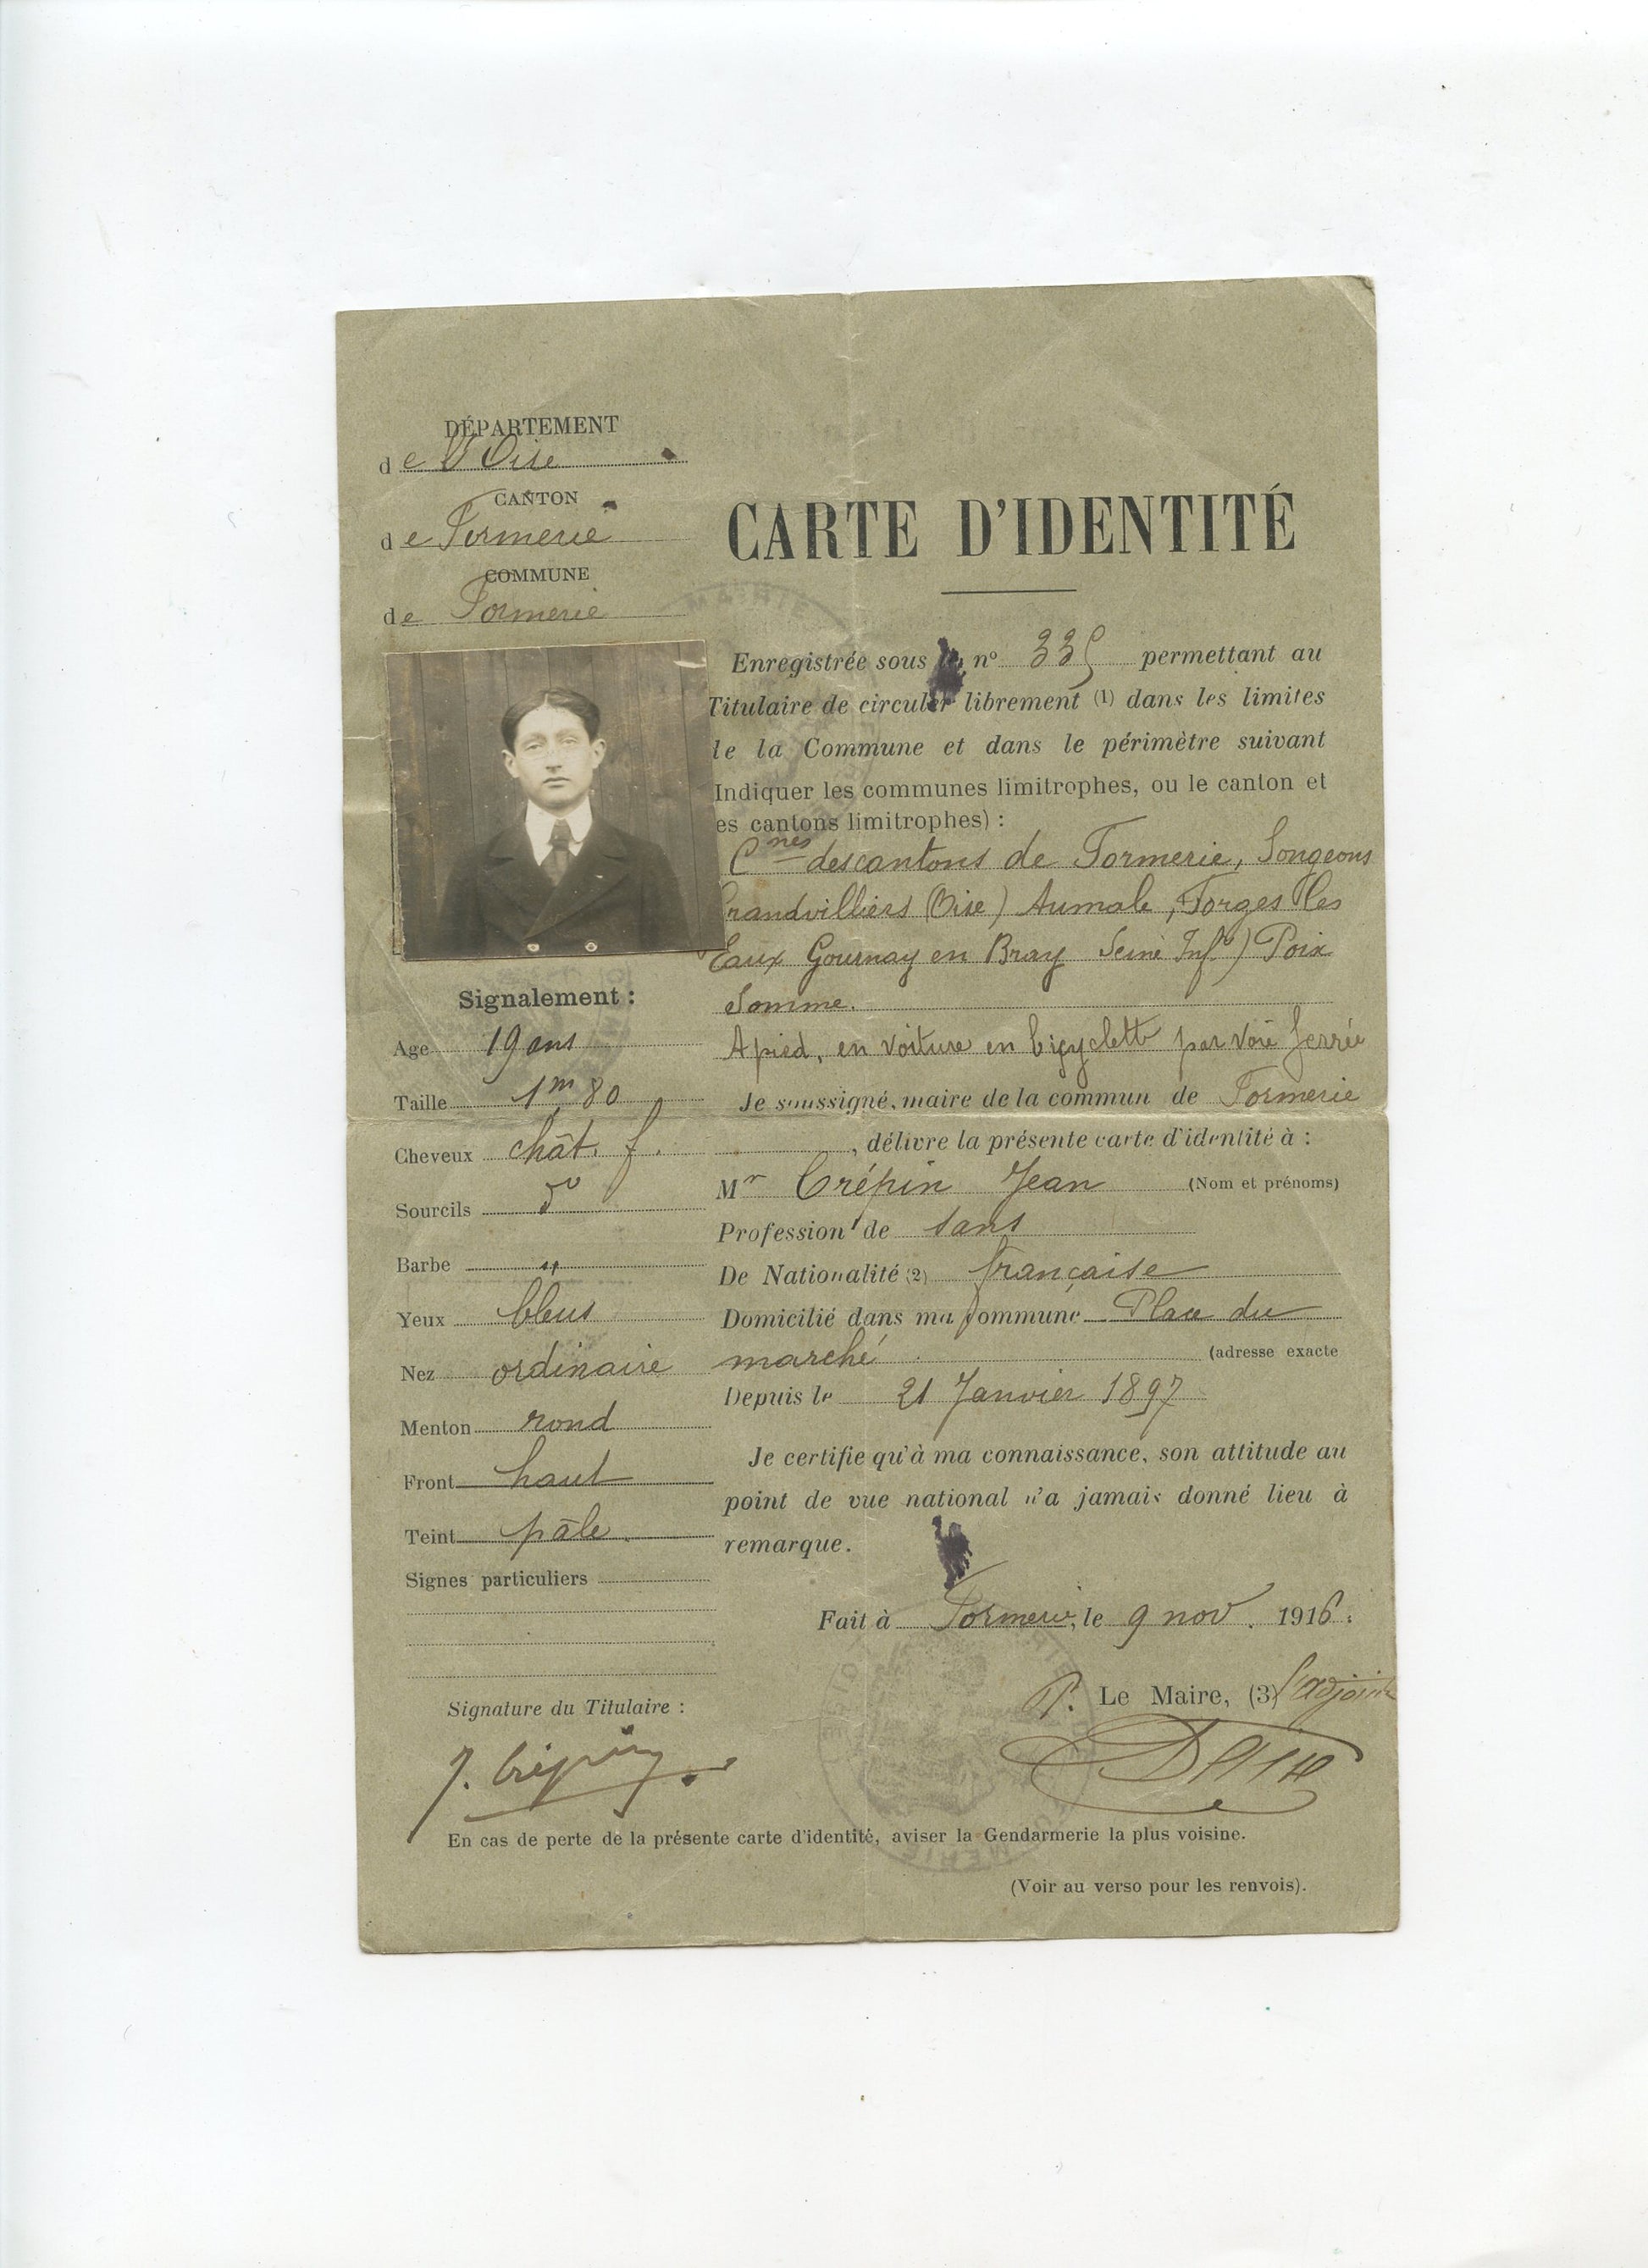 DÉPARTEMENT
de l'Oise
CANTON
de Formerie
COMMUNE
de Formerie
CARTE D'IDENTITÉ
MAIRIE
Enregistrée sous n° 335 permettant au
Titulaire de circuler librement (1) dans les limites
de la Commune et dans le périmètre suivant
Indiquer les communes limitrophes, ou le canton et
es cantons limitrophes) :
Cnes des cantons de Formerie, Songeons
Grandvilliers (Oise) Aumale, Forges les
Eaux Gournay en Bray Seine Infre) Poix
Somme.
A pied, en voiture en bicyclette par voie ferrée
Je soussigné, maire de la commun de Formerie
, délivre la présente carte d'identité à :
Mr Crépin Jean (Nom et prénoms)
Profession de sans
De Nationalité (2) française
Domicilié dans ma commune Place du
marché (adresse exacte
Depuis le 21 Janvier 1897
Je certifie qu'à ma connaissance, son attitude au
point de vue national n'a jamais donné lieu à
remarque.
Fait à Formerie, le 9 nov. 1916.
P. Le Maire, (3) l'adjoint
Signalement :
Age 19 ans
Taille 1m 80
Cheveux chât. f.
Sourcils do
Barbe "
Yeux bleus
Nez ordinaire
Menton rond
Front haut
Teint pâle
Signes particuliers
Signature du Titulaire :
J. Crépin
En cas de perte de la présente carte d'identité, aviser la Gendarmerie la plus voisine.
(Voir au verso pour les renvois).